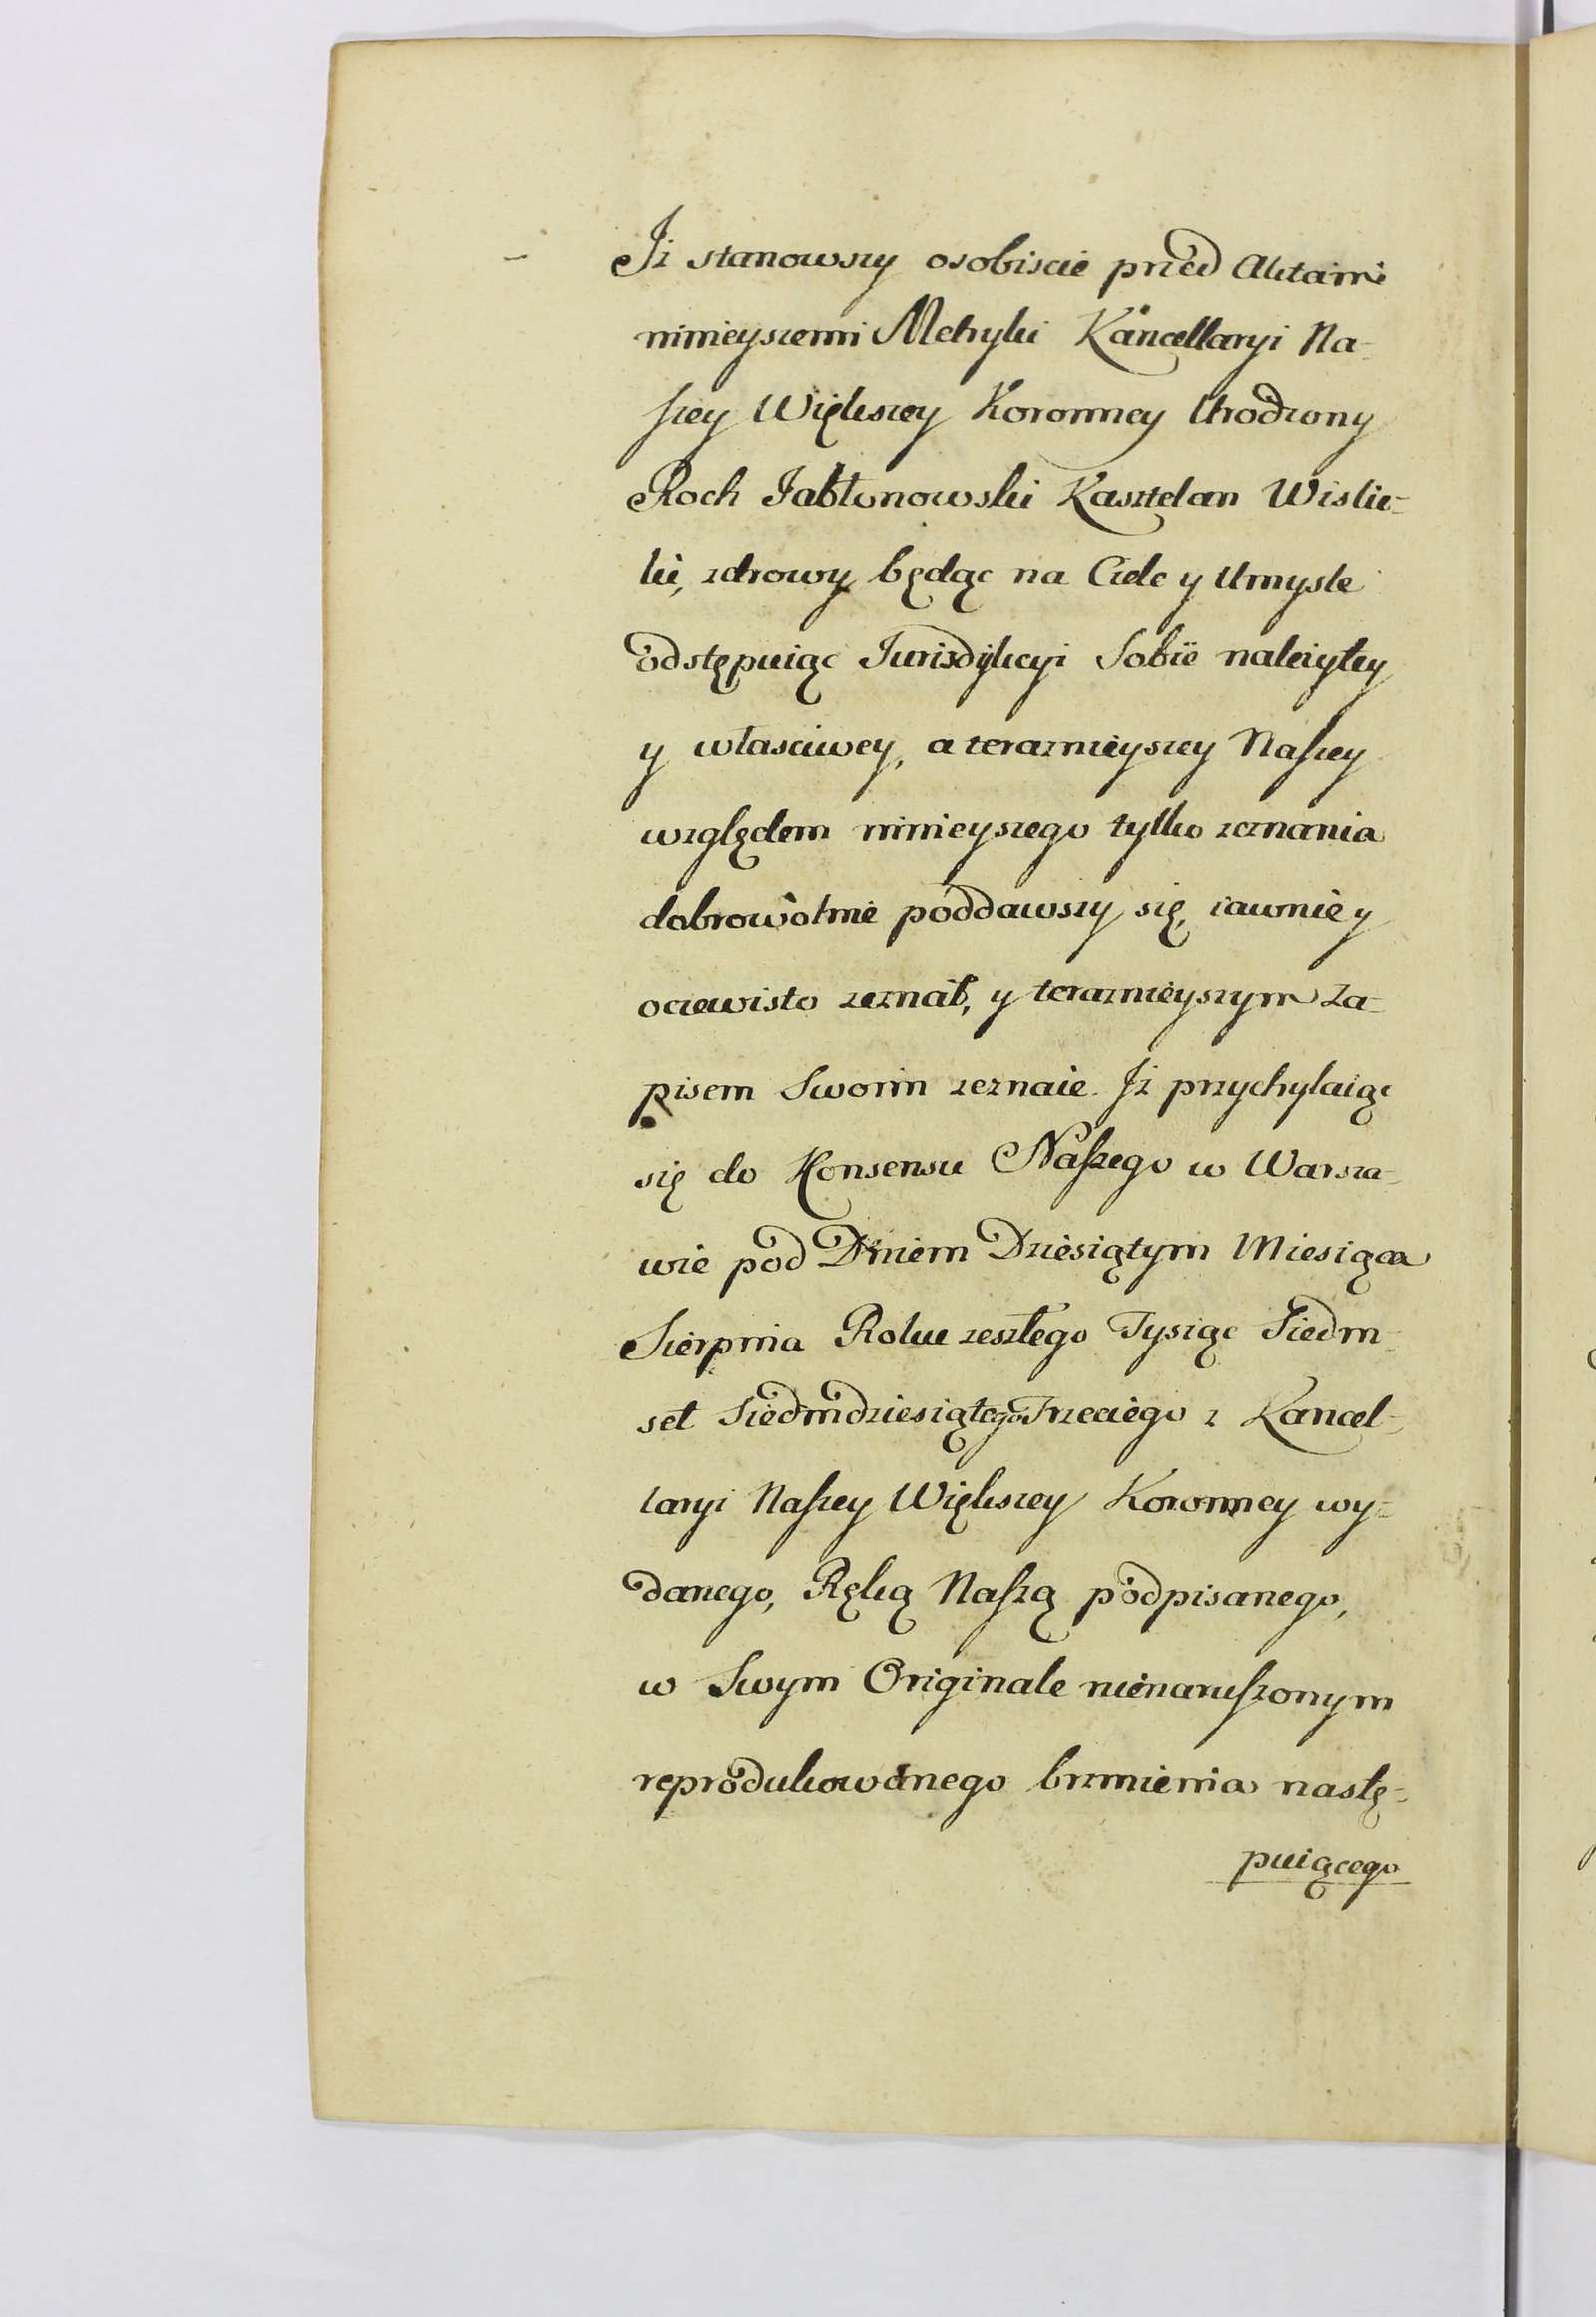 Iż stanowszy osobiscie przed Aktami
ninieyszemi Metryki Kancellaryi Na-
szey Większey Koronney Urodzony
Roch Jabłonowski Kasztelan Wislic-
ki, zdrowy będąc na Ciele y Umysle
odstępuiąc Jurisdykcyi Sobie należytey
y własciwey, a teraznieyszey Naszey
względem ninieyszego tylko zeznania
dobrowolnie poddawszy się, iawnie y
oczewisto zeznał, y teraznieyszym Za-
pisem Swoim zeznaie. Iż przychylaiąc
się do Konsensu Naszego w Warsza-
wie pod Dniem Dziesiątym Miesiąca
Sierpnia Roku zeszłego Tysiąc Siedm-
set Siedmdziesiątego Trzeciego z Kancel-
laryi Naszey Większey Koronney wy-
danego, Ręką Naszą podpisanego,
w Swym Originale nienaruszonym
reprodukowanego brzmienia nastę-
puiącego